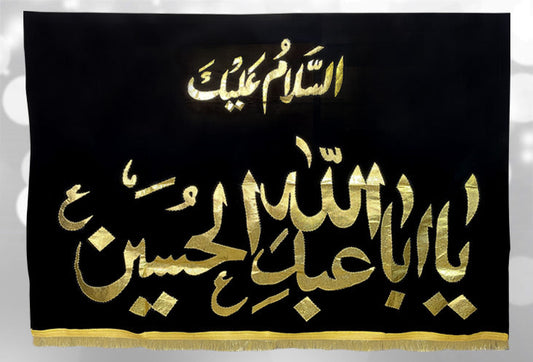 السَّلَامُ عَلَيْكَ
يا ابا عبدِ الله الحُسين ع